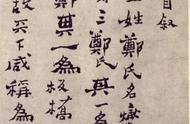 自叙
士姓鄭氏名燮
三鄭氏其一為
鄭其一為板橋
故天下咸稱為